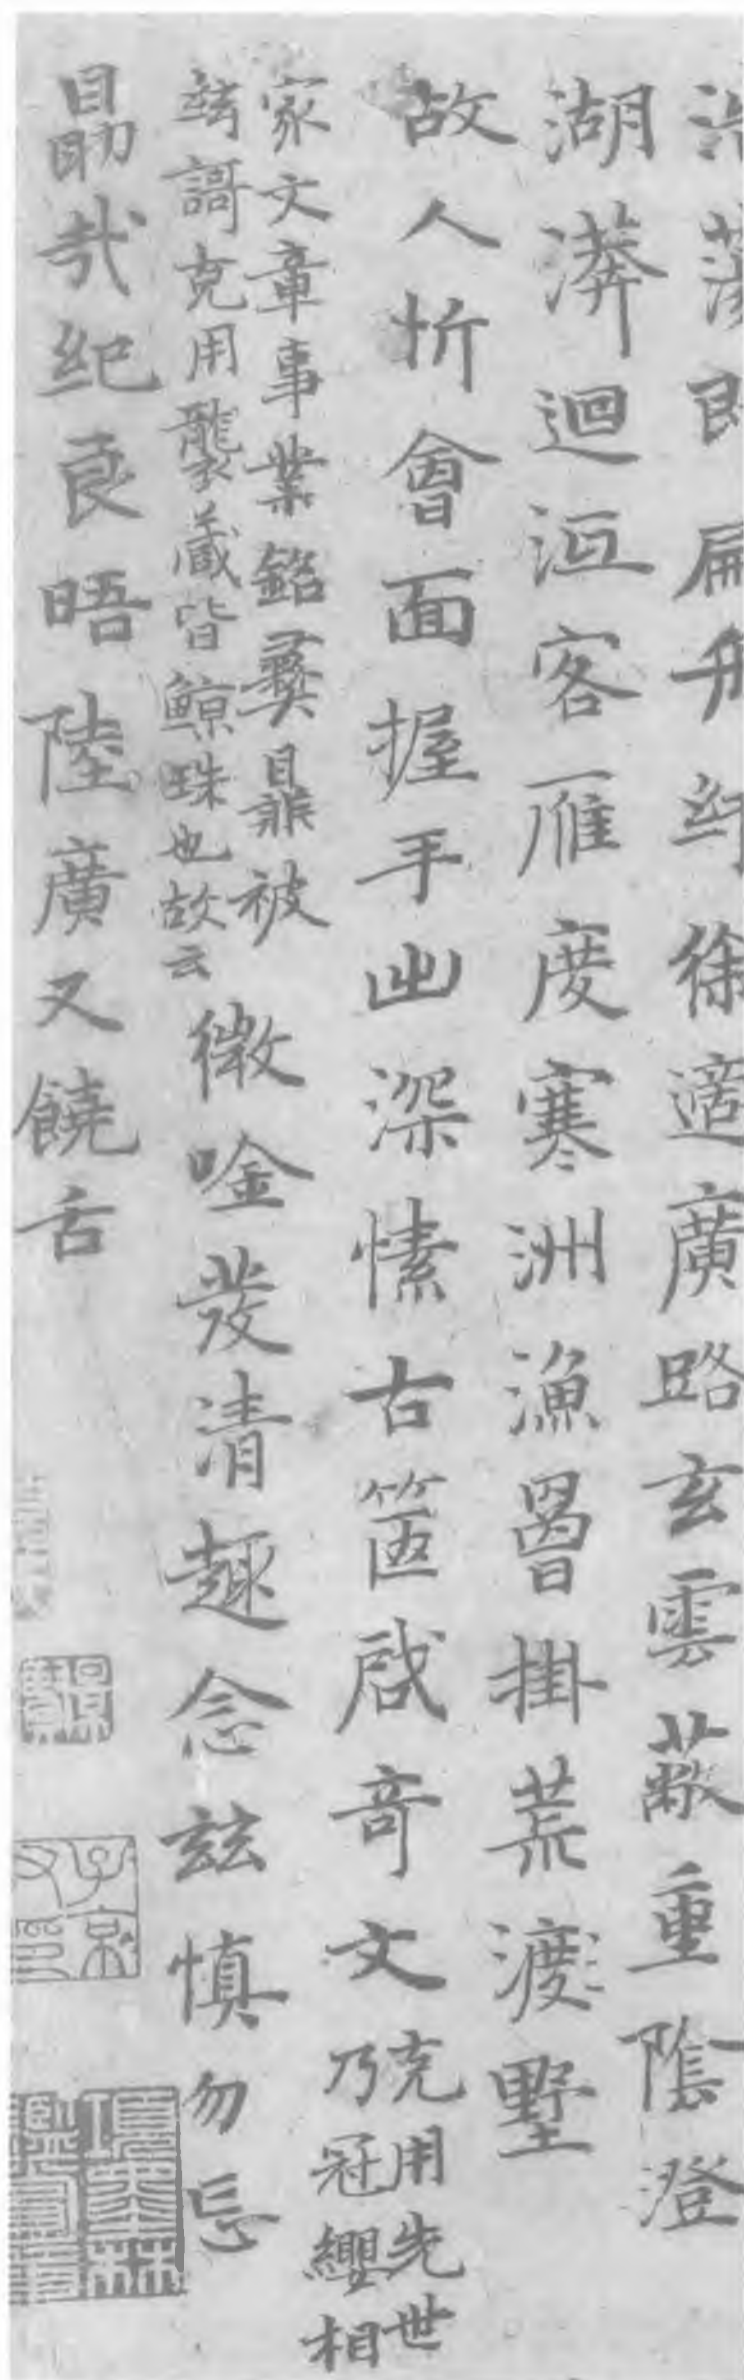 浩蕩即扁舟紆徐適廣路玄雲蔽重陰澄
湖漭迴沍客雁度寒洲漁罾掛荒渡墅
故人忻會面握手出深愫古篋啟奇文
克用先世
乃冠纓相
家文章事業銘彝鼎被
絃謌克用襲藏皆鯨珠也故云
徵唫發清趣念茲慎勿忘
勗哉紀良晤陸廣又饒舌
子京父印
項墨林鑑賞章